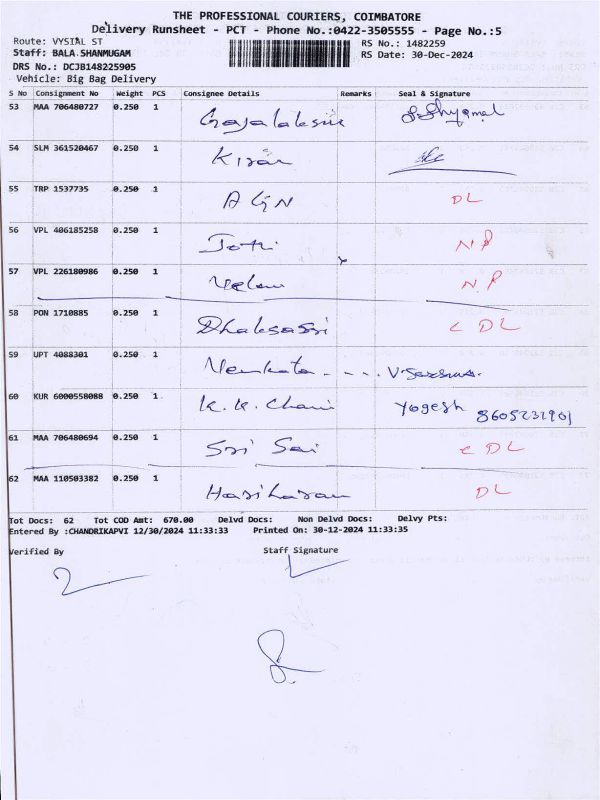 THE PROFESSIONAL COURIERS, COIMBATORE
Delivery Runsheet - PCT - Phone No.:0422-3505555 - Page No.:5
Route: VYSIAL ST RS No.: 1482259
Staff: BALA SHANMUGAM RS Date: 30-Dec-2024
DRS No.: DCJB148225905
Vehicle: Big Bag Delivery
S No Consignment No Weight PCS Consignee Details Remarks Seal & Signature
53 MAA 706480727 0.250 1
54 SLM 361520467 0.250 1 Kiran
55 TRP 1537735 0.250 1 DL
56 VPL 406185258 0.250 1 Joti N P
57 VPL 226180986 0.250 1 Velan N.P
58 PON 1710885 0.250 1 c DL
59 UPT 4088301 0.250 1 Venkata - - - .
60 KUR 6000558088 0.250 1 K.K. Yogesh 8605232901
61 MAA 706480694 0.250 1 Sri Sai c DL
62 MAA 110503382 0.250 1 Hariharan DL
Tot Docs: 62 Tot COD Amt: 670.00 Delvd Docs: Non Delvd Docs: Delvy Pts:
Entered By :CHANDRIKAPVI 12/30/2024 11:33:33 Printed On: 30-12-2024 11:33:35
Verified By Staff Signature